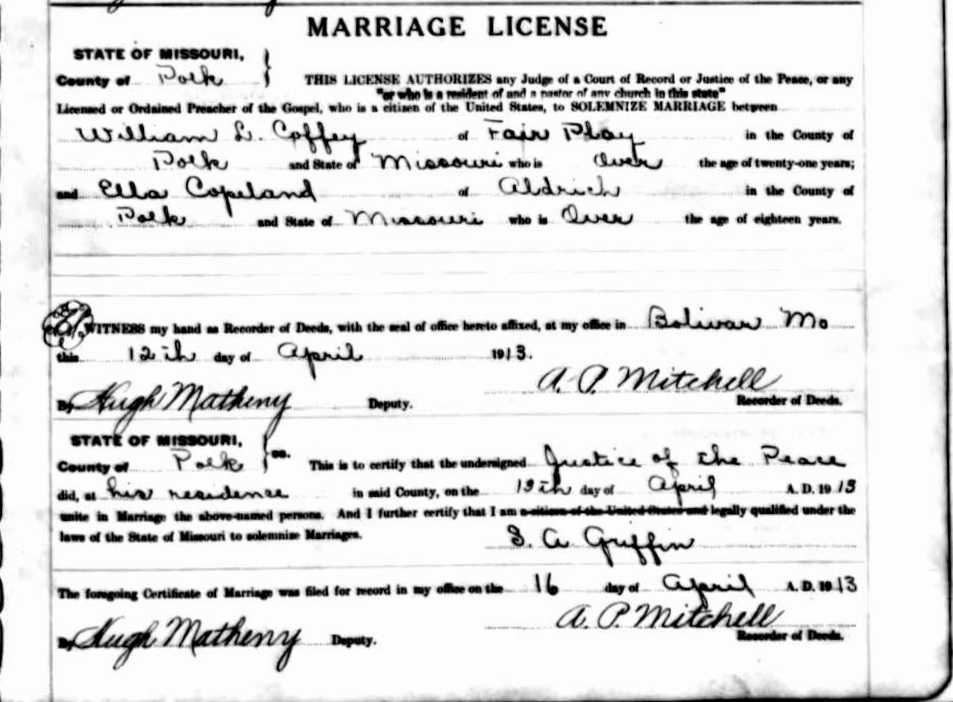 MARRIAGE LICENSE
STATE OF MISSOURI,
County of Polk
THIS LICENSE AUTHORIZES any Judge of a Court of Record or Justice of the Peace, or any
"or who is a resident of and a pastor of any church in this state"
Licensed or Ordained Preacher of the Gospel, who is a citizen of the United States, to SOLEMNIZE MARRIAGE between
William L. Coffey of Fair Play in the County of
Polk and State of Missouri who is Over the age of twenty-one years;
and Ella Copeland of Aldrich in the County of
Polk and State of Missouri who is Over the age of eighteen years.
WITNESS my hand as Recorder of Deeds, with the seal of office hereto affixed, at my office in Bolivar Mo
this 12th day of April 1913.
A. P. Mitchell
By Hugh Matheny Deputy. Recorder of Deeds.
STATE OF MISSOURI,
County of Polk ss. This is to certify that the undersigned Justice of the Peace
did, at his residence in said County, on the 13th day of April A. D. 1913
unite in Marriage the above-named persons. And I further certify that I am a citizen of the United States and legally qualified under the
laws of the State of Missouri to solemnize Marriages.
S. A. Griffin
The foregoing Certificate of Marriage was filed for record in my office on the 16 day of April A. D. 1913
A. P. Mitchell
By Hugh Matheny Deputy. Recorder of Deeds.